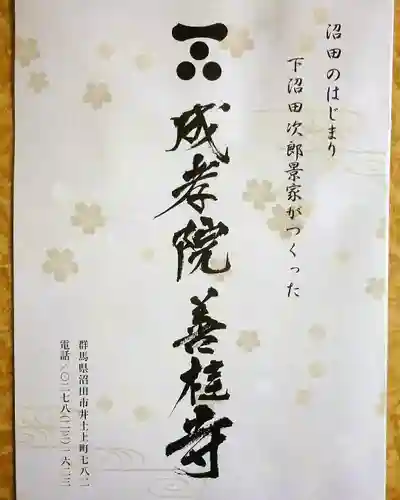 沼田のはじまり
下沼田次郎景家がつくった
成孝院 善桂寺
群馬県沼田市井土上町七八二
電話／〇二七八(二三)一六二三